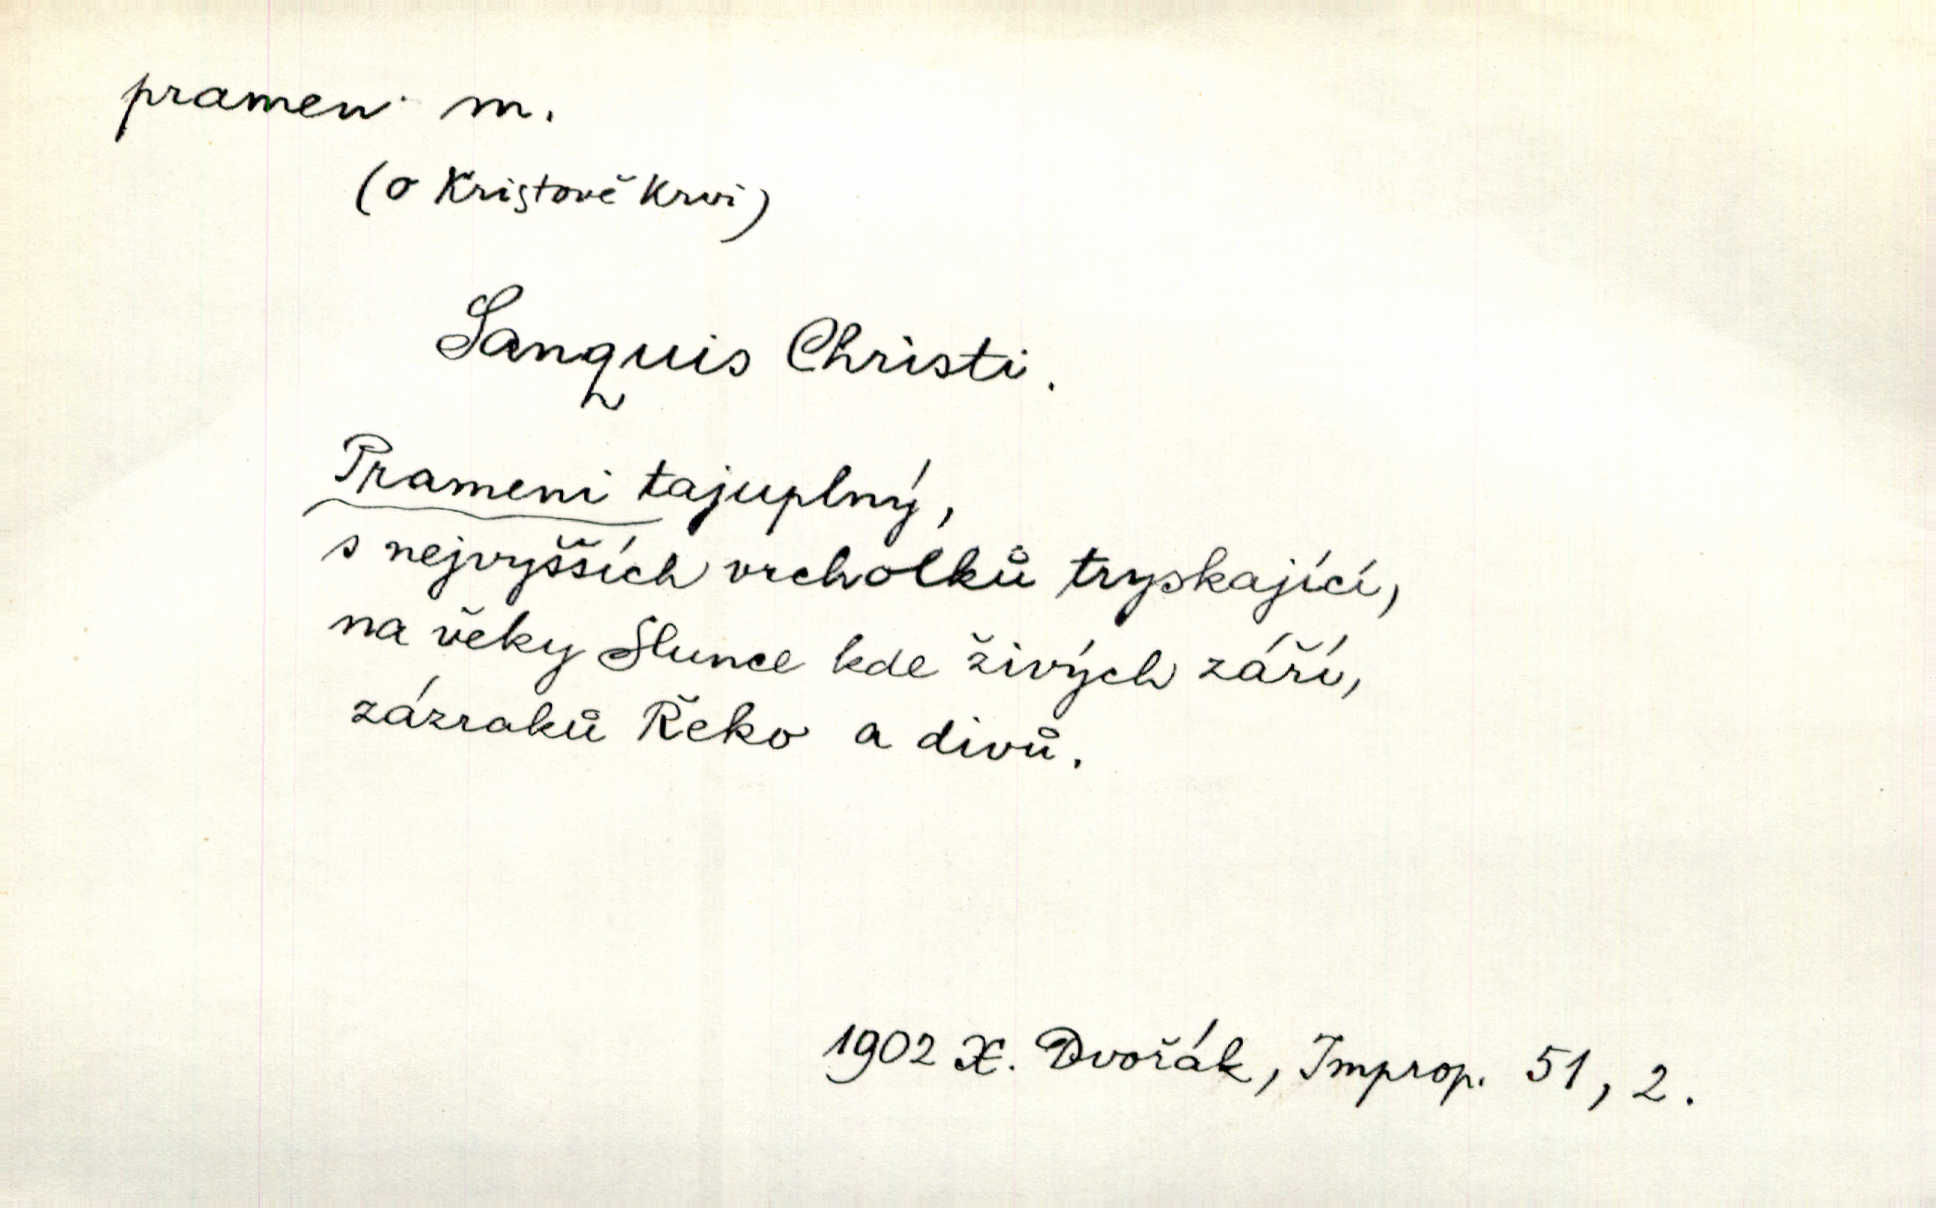 pramen m.
(o Kristově Krvi)
Sanguis Christi.
Prameni tajuplný,
s nejvyšších vrcholků tryskající,
na věky Slunce kde živých září,
zázraků Řeko a divů.
1902 X. Dvořák, Improp. 51, 2.